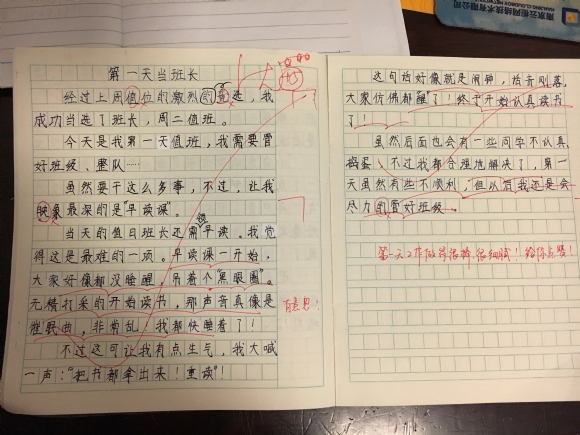 南京云相网络技术有限公司
第一天当班长
经过上周值位的激烈的竞选，我
成功当选了班长，周二值班。
今天是我第一天值班，我需要管
好班级、整队……
虽然要干这么多事，不过，让我
映象最深的是“早读课”。
当天的值日班长还需早读。我觉
得这是最难的一项。早读课一开始，
大家好像都没睡醒，吊着个“黑眼圈”。
无精打采的开始读书，那声音真像是
催眠曲，非常乱，我都快睡着了！
不过这可让我有点生气，我大喊
一声：“把书都拿出来！重读”！
有意思！
这句话好像就是闹钟，话音刚落，
大家仿佛都“醒”了！终于开始认真读书
了！
虽然后面也会有一些同学不认真、
捣蛋、不过我都合理地解决了，第一
天虽然有些不顺利，但以后我还是会
尽力的管好班级。
第一天工作做得很棒，很细腻！给你点赞！